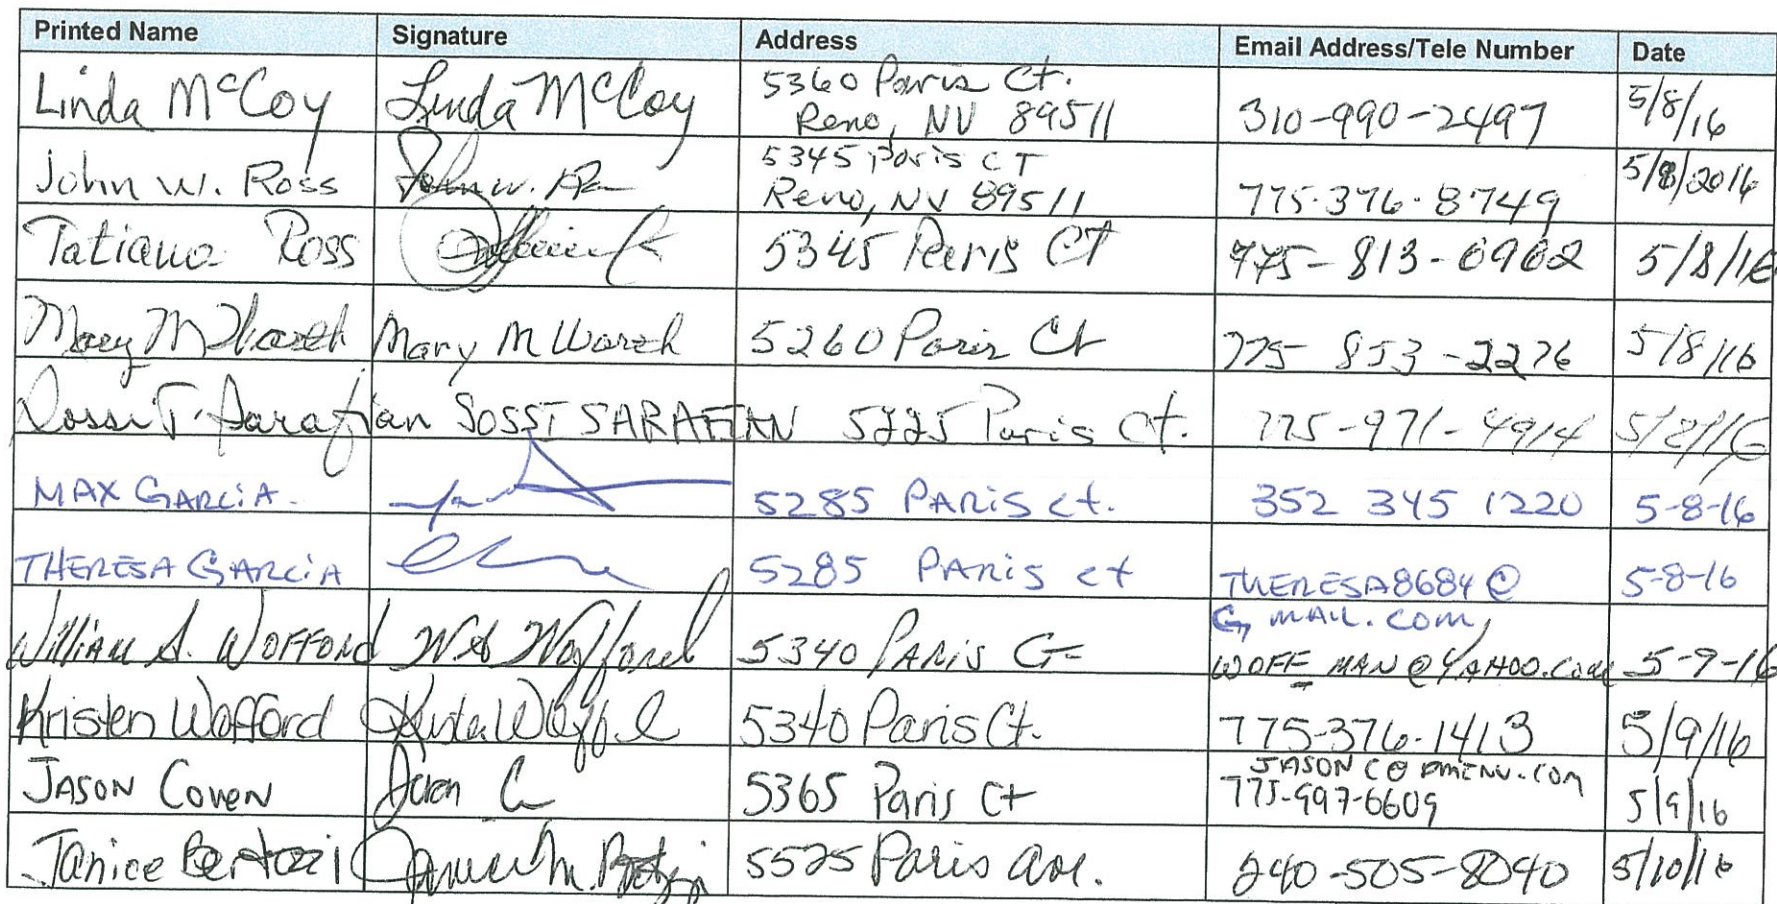 Printed Name Signature Address Email Address/Tele Number Date
Linda McCoy Linda McCoy 5360 Paris Ct. 310-990-2497 5/8/16
Reno, NV 89511
John W. Ross John W. 5345 Paris CT 775-376-8749 5/8/2016
Reno, NV 89511
Tatiana Ross 5345 Paris CT 775-813-0902 5/8/16
Mary M Mary M 5260 Paris Ct 775-853-2276 5/8/16
Sossi T. Sarafian SOSSI SARAFIAN 5225 Paris Ct. 775-971-4914 5/8/16
MAX GARCIA. 5285 PARIS ct. 352 345 1220 5-8-16
THERESA GARCIA 5285 PARIS ct THERESA8684@ 5-8-16
GMAIL.COM
William A. WOFFORD Wofford 5340 PARIS Ct WOFF_MAN@YAHOO.COM 5-9-16
Kristen Wofford 5340 Paris Ct. 775-376-1413 5/9/16
JASON COVEN Jason C 5365 Paris Ct JASONC@PMENV.COM 5/9/16
775-997-6609
Janice Bertozzi Janice M. 5525 Paris Ave. 240-505-8040 5/10/16